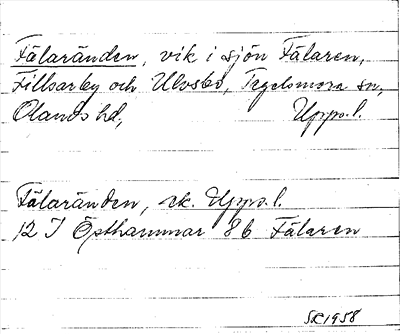 Fälaränden, vik i sjön Fälaren,
Fillsarby och Ulvsbo, Tegelsmora sn,
Olands hd, Upps. l.
Fälaränden, ek. Upps. l.
12 I Östhammar 8b Fälaren
SR 1958